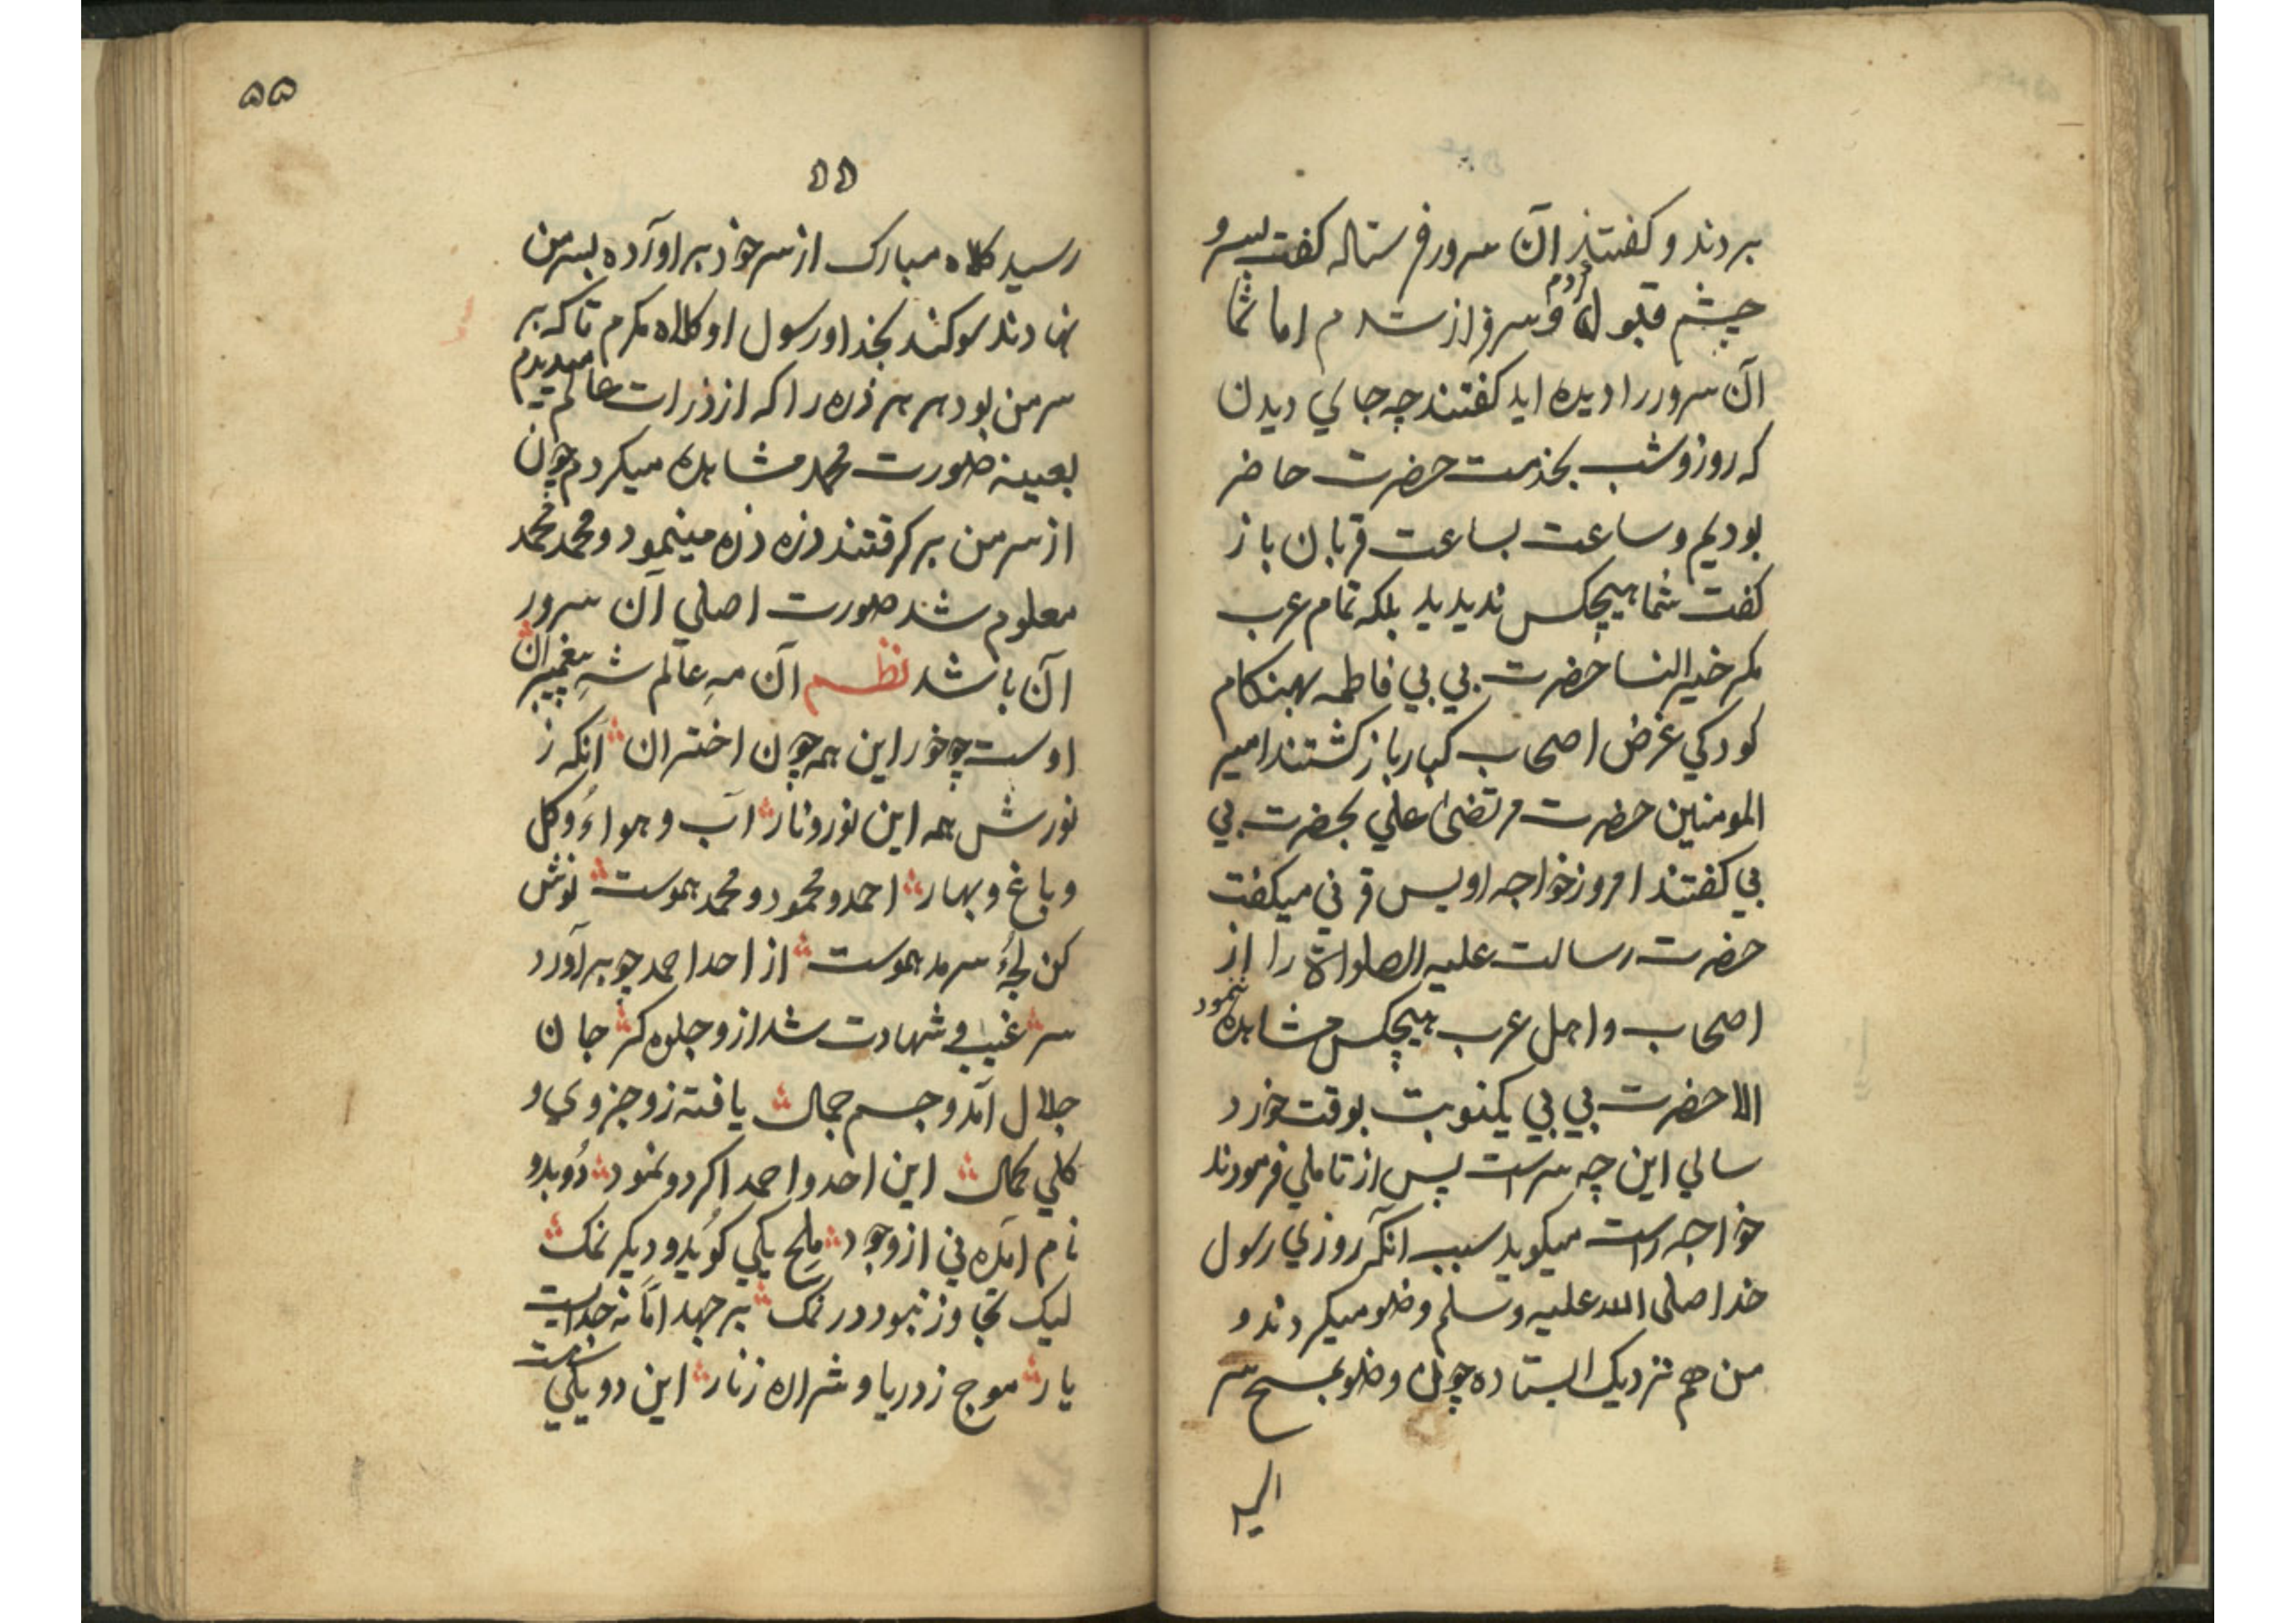 بردند و کفتند آن سرور فرستاله کفت بسرو
چشم قبول کردم و سرفراز شدم اما شما
آن سرور را دیده اید کفتند چه جاي دیدن
که روز و شب بخدمت حضرت حاضر
بودیم و ساعت بساعت قربان باز
کفت شما هیچکس ندیدید بلکه تمام عرب
مکر خیر النسا حضرت بي بي فاطمه بهنکام
کودکي غرض اصحاب کبار باز کشتند امیر
المومنین حضرت مرتضیٰ علي بحضرت بي
بي کفتند امروز خواجه اویس قرني میکفت
حضرت رسالت علیه الصلواة را از
اصحاب و اهل عرب هیچکس مشاهده ننمود
الا حضرت بي بي یکنوبت بوقت خورد
سالي این چه سرست پس از تاملي فرمودند
خواجه راست میکوید سبب آنکه روزي رسول
خدا صلی الله علیه وسلم وضو میکردند و
من هم نزدیک ایستاده چون وضو بمسح سر
۵۵
۵۵
رسید کلاه مبارک از سر خود بر اوآرده بسر من
نهادند سوکند بخدا و رسول او کلاه مکرم تا که بر
سر من بود هر هر ذره را که از ذرات عالم میدیدم
بعینه صورت محمد مشاهده میکردم چون
از سر من بر کرفتند ذره ذره مینمود و محمد محمد
معلوم شد صورت اصلي آن سرور
آن باشد نظم آن مهِ عالم شهِ پیغمبران
اوست چو خور این همه چون اختران آنکه ز
نورش همه این نور و نار آب و هواءُ و کل
و باغ و بهار احمد و محمود و محمد هموست نوش
کن لجهٔ سرمد هموست از احد احمد چو بر آورد
سر غیب في شهادت شد ازو جلوه کر جان
جلال آمد و جسم جمال یافته زو جزوي و
کلي کمال این احد و احمد اکر دو نمود دُو بدو
نام آمده ني از وجود ملح یکي کوید و دیکر نمک
لیک تجاوز نبود در نمک بر جهد امّا نه جداست
یار موج ز دریا و شراره ز نار این دو یکي